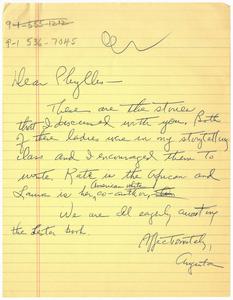 9-1-555-1212
9-1 536-7045
Dear Phyllis—
These are the stories
that I discussed with you. Both
of these ladies were in my storytelling
class and I encouraged them to
write. Kate is the African and
American
Laura is her co-author,
We are all eagerly awaiting
the book.
Affectionately,
Augusta